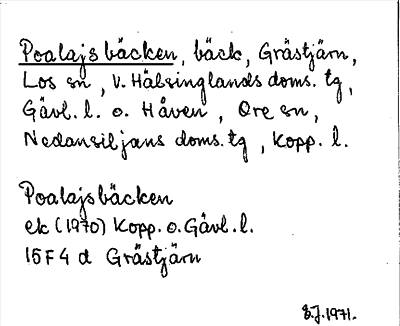 Poalajsbäcken, bäck, Grästjärn,
Los sn, V. Hälsinglands doms. tg,
Gävl. l. o. Håven, Ore sn,
Nedansiljans doms. tg, Kopp. l.
Poalajsbäcken
ek (1970) Kopp. o. Gävl. l.
15F4d Grästjärn
S.J. 1971.